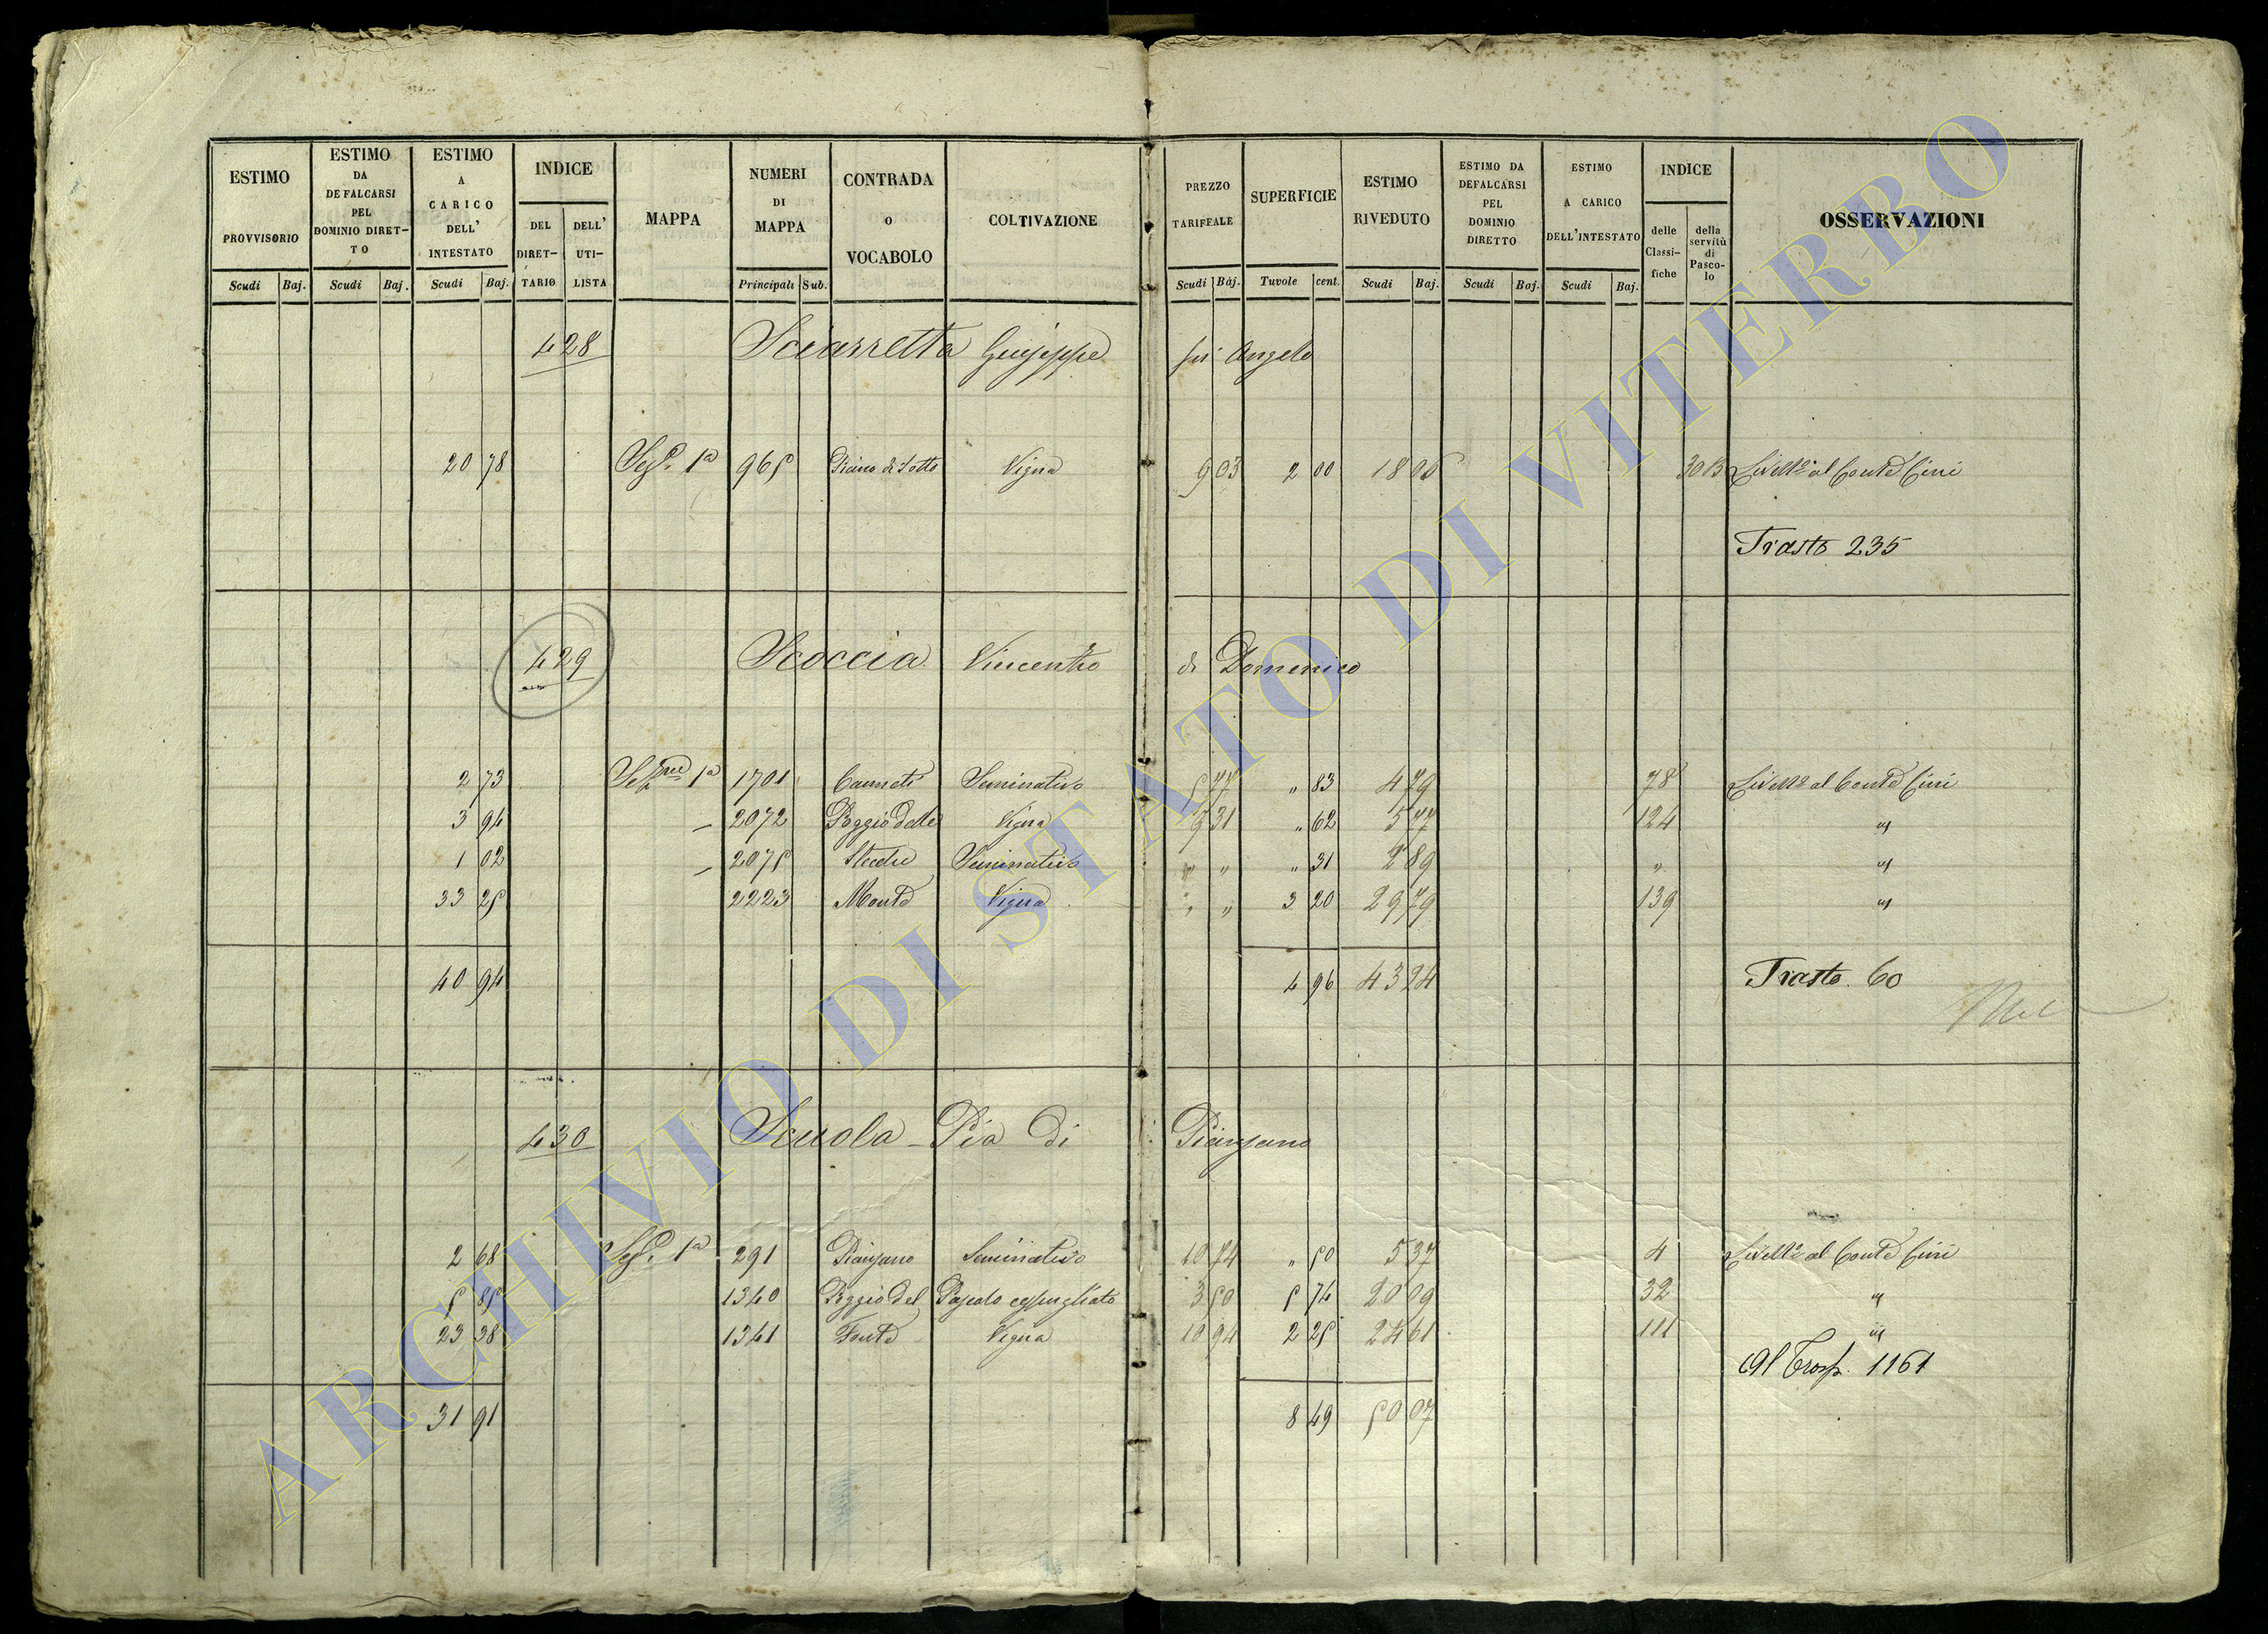 ESTIMO PROVVISORIO
ESTIMO DA DEFALCARSI PEL DOMINIO DIRET-TO
ESTIMO A CARICO DELL' INTESTATO
INDICE
DEL DIRET-TARIO
DELL' UTI-LISTA
MAPPA
NUMERI DI MAPPA
CONTRADA o VOCABOLO
COLTIVAZIONE
PREZZO TARIFFALE
SUPERFICIE
ESTIMO RIVEDUTO
ESTIMO DA DEFALCARSI PEL DOMINIO DIRETTO
ESTIMO A CARICO DELL'INTESTATO
INDICE
delle Classi-fiche
della servitù di Pasco-lo
OSSERVAZIONI
Scudi Baj. Scudi Baj. Scudi Baj. Principali Sub. Scudi Baj. Tavole cent. Scudi Baj. Scudi Baj. Scudi Baj.
428 Sciarretta Giuseppe fu Angelo
20 78 Sez.e 1a 965 Piano di Sotto Vigna 9 03 2 00 18 06 Livello al Conte Cini
Trasto 235
429 Scoccia Vincenzo di Domenico
2 73 Sezne 1a 1701 Canneti Seminativo 5 77 " 83 4 79 78 Livello al Conte Cini
3 94 – 2072 Poggio delle Vigna 9 31 " 62 5 77 124 "
1 02 – 2075 Stecche Seminativo " " " 31 2 89 " "
33 25 2223 Monte Vigna " " 3 20 29 79 139 "
40 94 4 96 43 24
Trasto 60
430 Scuola Pia di Pianzano
2 68 Sez.e 1a 291 Pianzano Seminativo 10 74 " 50 5 37 4 Livello al Conte Cini
5 85 1340 Poggio del Pascolo cespugliato 3 50 5 74 20 09 32 "
23 38 1341 Fonte Vigna 10 94 2 25 24 61 111 "
Al Trasp. 1161
31 91 8 49 50 07
ARCHIVIO DI STATO DI VITERBO